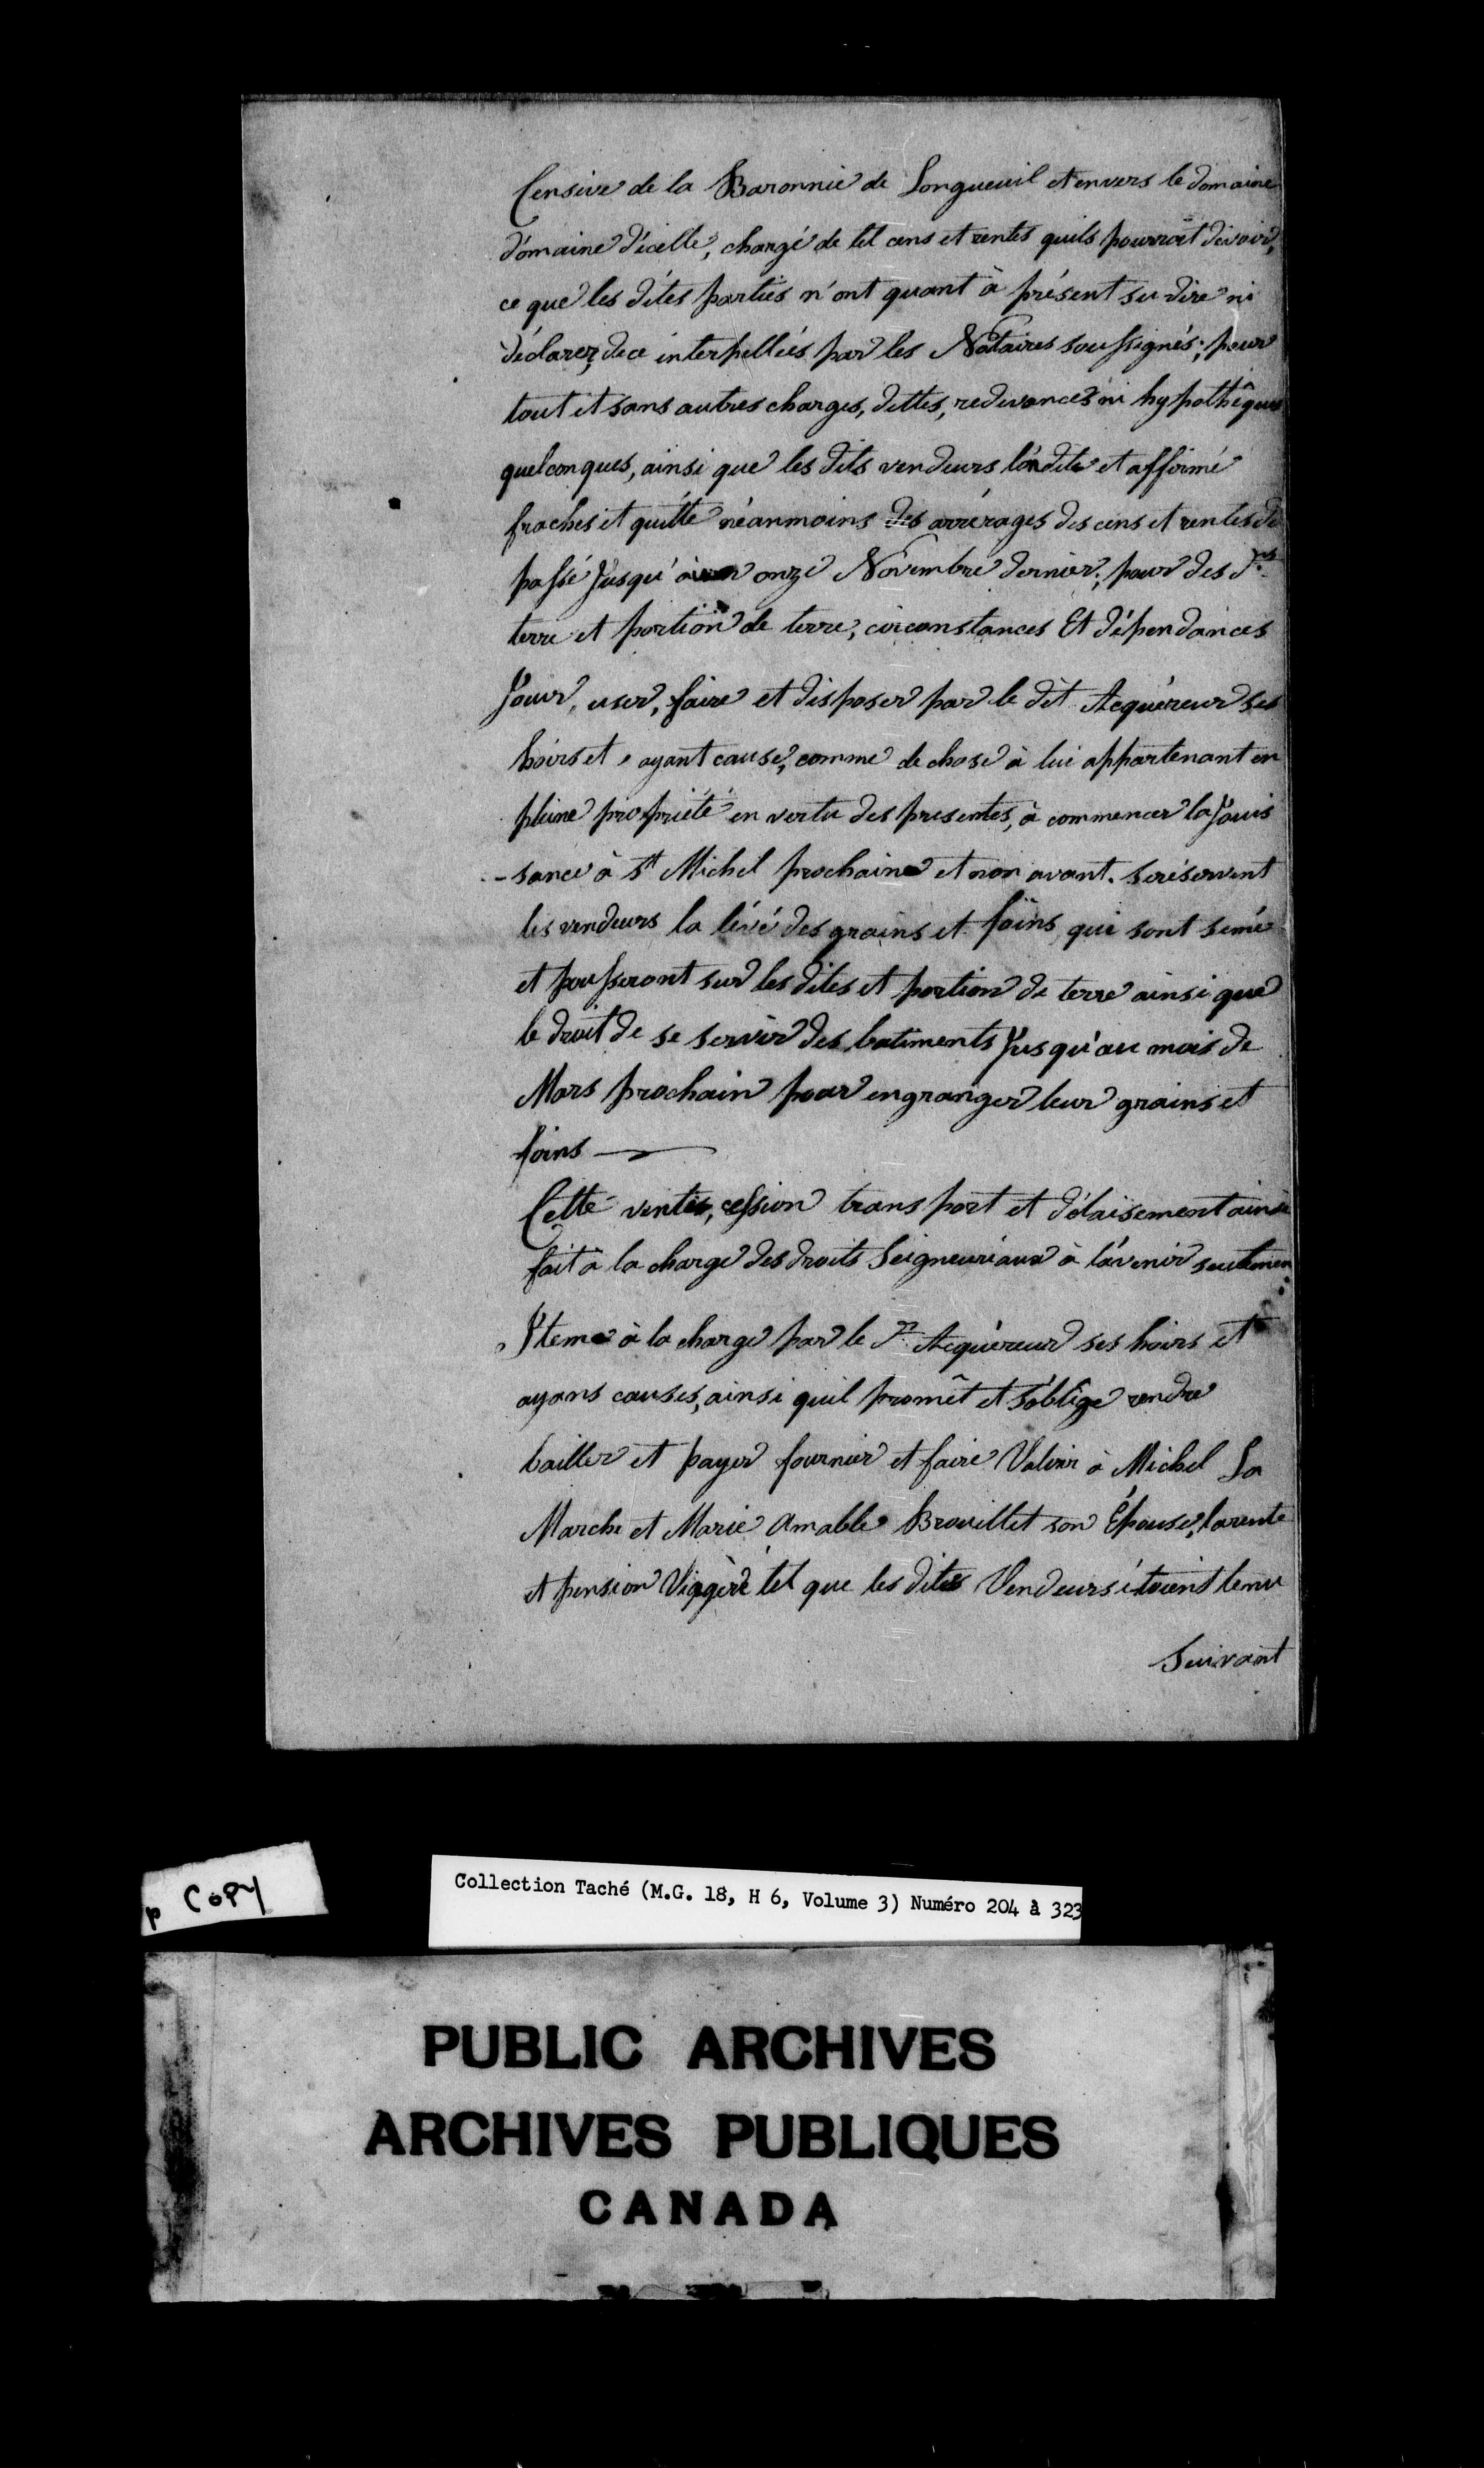 Censive de la Baronnie de Longueuil et envers le domaine
domaine d'icelle, chargé de tel cens et rentes quils pourroit devoir,
ce que les dites parties n'ont quant à présent su dire ni
déclarer, de ce interpellées par les Notaires soussignés; pour
tout et sans autres charges, dettes, redevances ni hypothêques
quelconques, ainsi que les dits vendeurs l'on dite et affirmé
fraches et quitte néanmoins des arrérages des cens et rentes du
passé Jusqu'à onze Novembre dernier; pour des d.tes
terre et portion de terre, circonstances Et dépendances
Jouir, user, faire et disposer par le dit Acquéreur ses
hoirs et ayant cause, comme de chose à lui appartenant en
pleine propriété en vertu des presentes, à commencer la Jouis
-sance à St Michel prochaine et non avant. se réservent
les vendeurs la levé des grains et foins qui sont semé
et pousseront sur les dites et portion de terre ainsi que
le droit de se servir des batiments Jusqu'au mois de
Mars prochain pour engranger leur grains et
foins
Cette vente, cession transport et délaisement ainsi
fait à la charge des droits Seigneuriaux à l'avenir seulemen
Item à la charge par le dt Acquéreur ses hoirs et
ayans causes, ainsi quil promêt et s'oblige rendre
bailler et payer fournir et faire Valoir à Michel La
Marche et Marie Amable Brouillet son Épouse, la rente
et pension Viagère tel que les dites Vendeurs étoient tenu
Suivant
p COPY
Collection Taché (M.G. 18, H 6, Volume 3) Numéro 204 à 323
PUBLIC ARCHIVES
ARCHIVES PUBLIQUES
CANADA